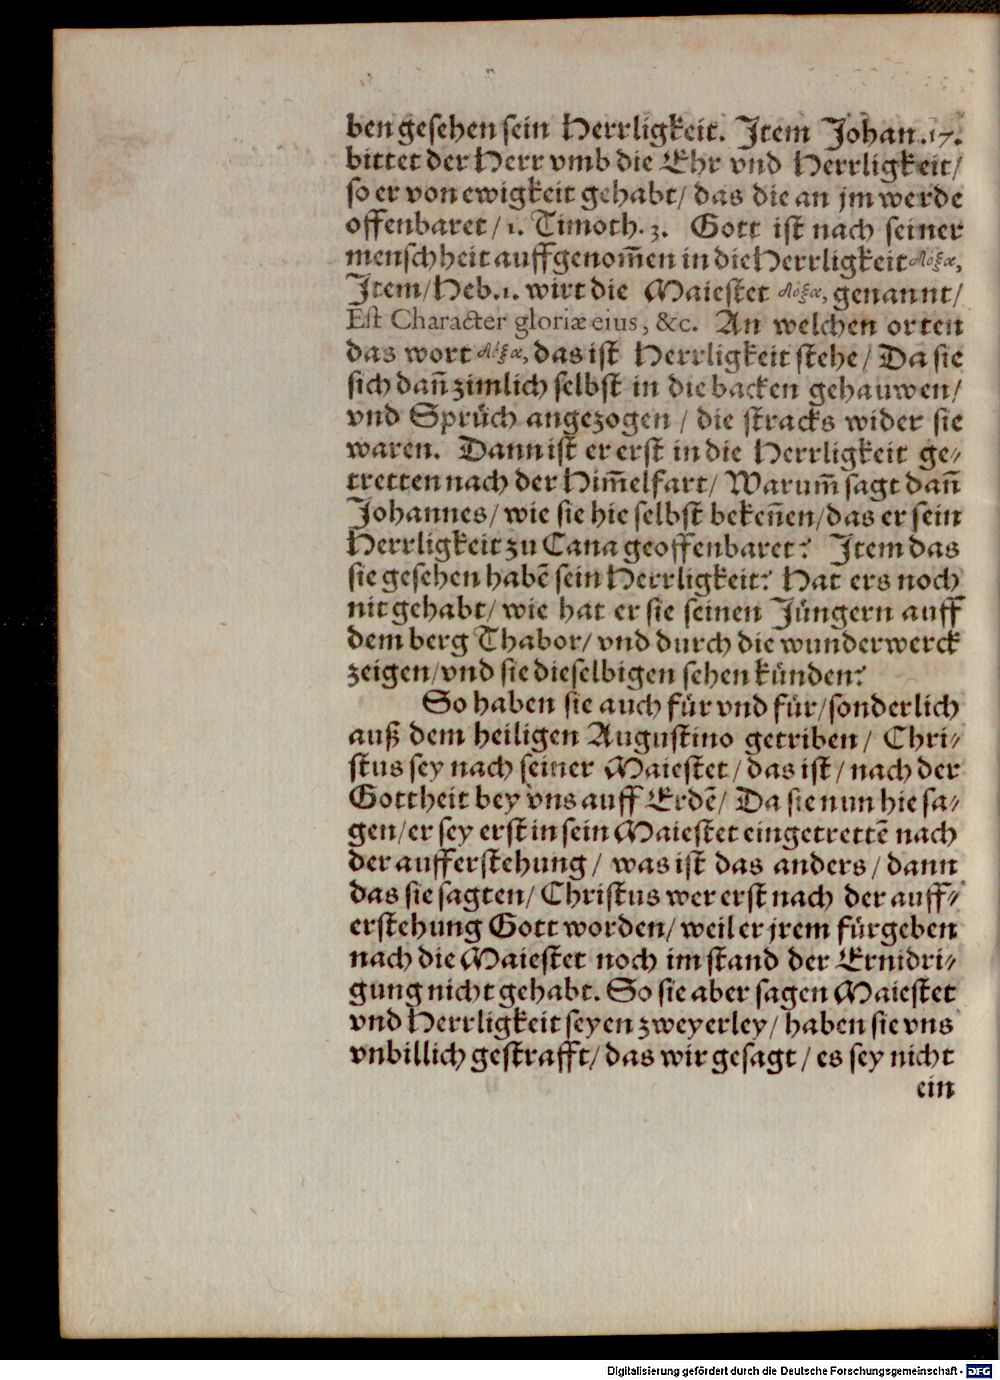 ben gesehen sein Herrligkeit. Item Johan.17.
bittet der Herr vmb die Ehr vnd Herrligkeit/
so er von ewigkeit gehabt/ das die an jm werde
offenbaret/ 1. Timoth. 3. Gott ist nach seiner
menschheit auffgenom̃en in die Herrligkeit δόξα,
Item/ Heb.1. wirt die Maiestet δόξα, genannt/
Est Character gloriæ eius, &c. An welchen orten
das wort δόξα, das ist Herrligkeit stehe/ Da sie
sich dañ zimlich selbst in die backen gehauwen/
vnd Sprüch angezogen / die stracks wider sie
waren. Dann ist er erst in die Herrligkeit ge⸗
tretten nach der Him̃elfart/ Warum̃ sagt dañ
Johannes/ wie sie hie selbst bekeñen/ das er sein
Herrligkeit zu Cana geoffenbaret? Item das
sie gesehen habẽ sein Herrligkeit? Hat ers noch
nit gehabt/ wie hat er sie seinen Jüngern auff
dem berg Thabor/ vnd durch die wunderwerck
zeigen/ vnd sie dieselbigen sehen künden?
So haben sie auch für vnd für/ sonderlich
auß dem heiligen Augustino getriben/ Chri⸗
stus sey nach seiner Maiestet/ das ist/ nach der
Gottheit bey vns auff Erdẽ/ Da sie nun hie sa⸗
gen/ er sey erst in sein Maiestet eingetrettẽ nach
der aufferstehung/ was ist das anders/ dann
das sie sagten/ Christus wer erst nach der auff⸗
erstehung Gott worden/ weil er jrem fürgeben
nach die Maiestet noch im stand der Ernidri⸗
gung nicht gehabt. So sie aber sagen Maiestet
vnd Herrligkeit seyen zweyerley/ haben sie vns
vnbillich gestrafft/ das wir gesagt/ es sey nicht
ein
Digitalisierung gefördert durch die Deutsche Forschungsgemeinschaft - DFG